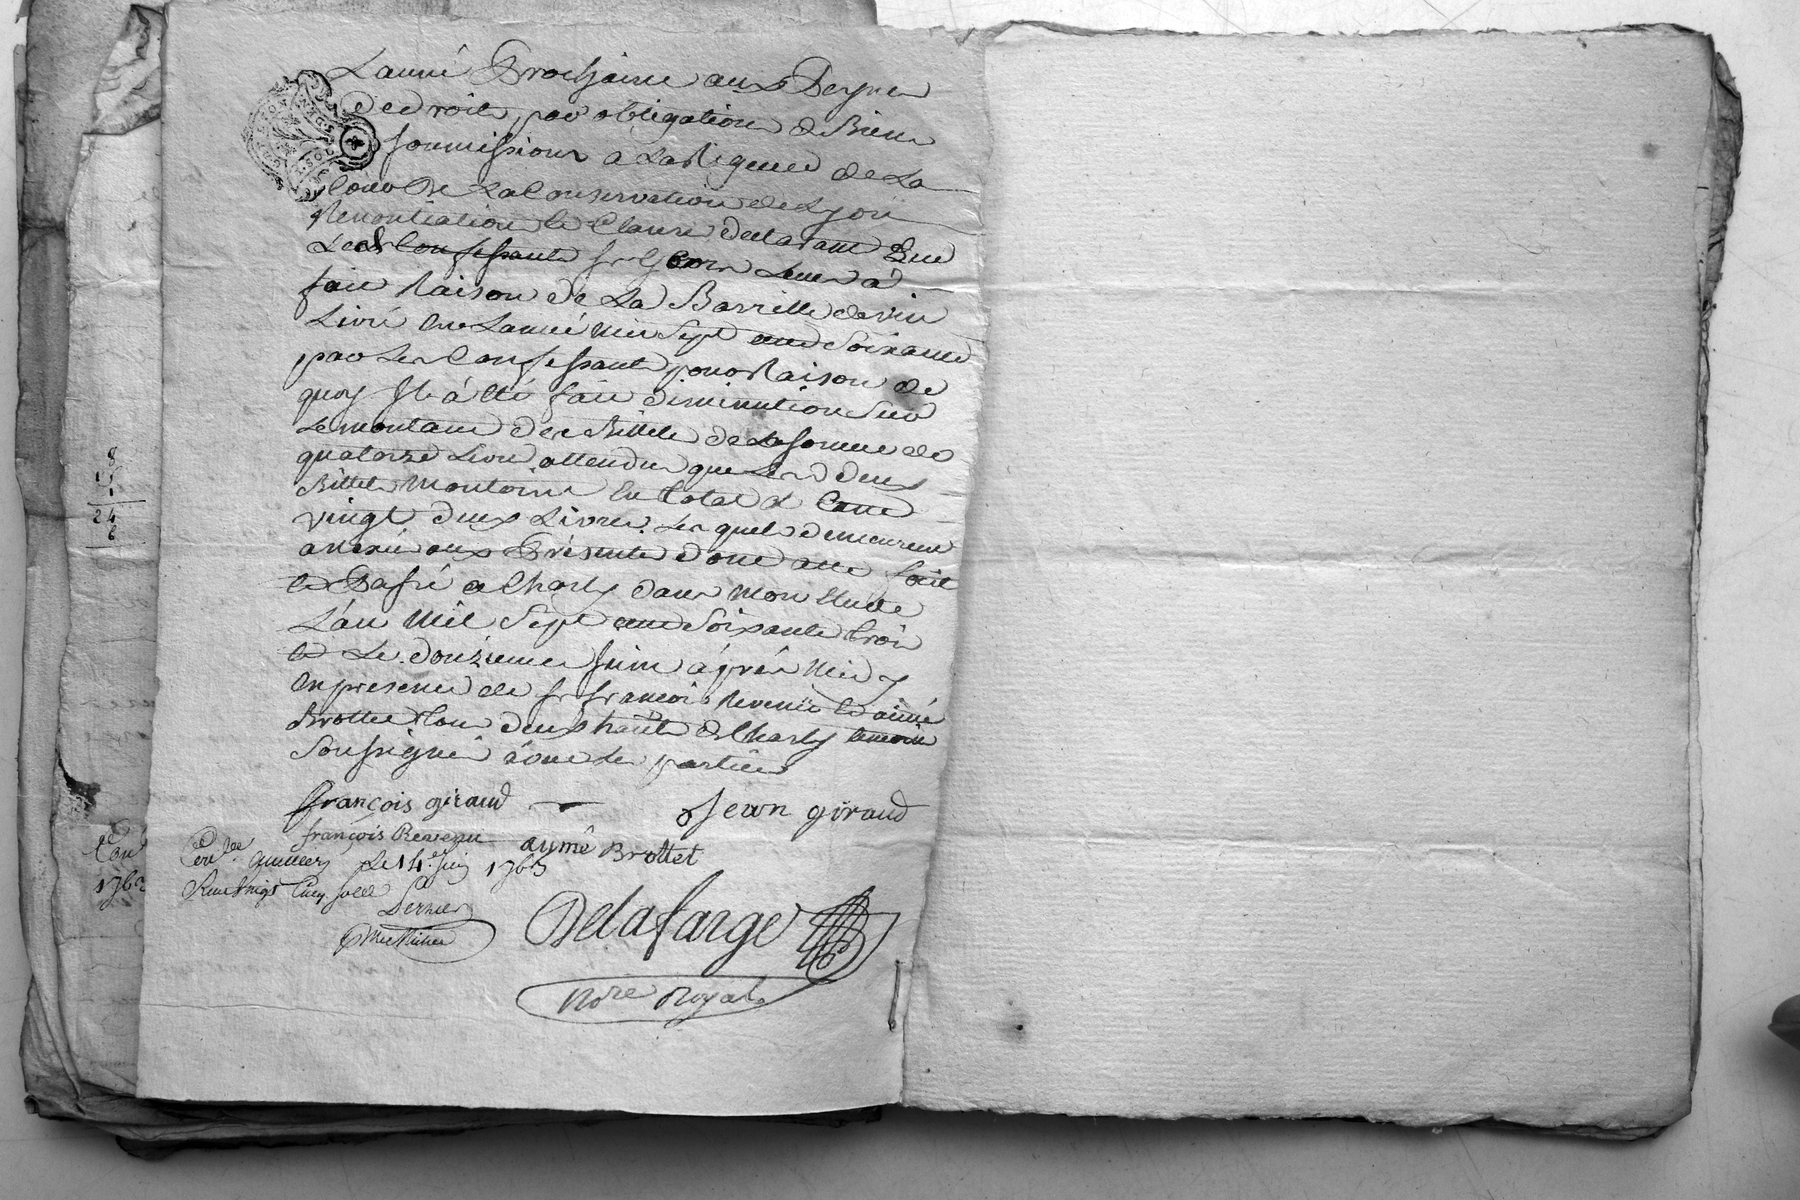 L'anné Prochaine aux Peynes
de droit, par obligation de Biens
soumissions a La Rigeur de La
Cour De La Conservation de Lyon
Renontiation le Clause declarant Que
Led. Confessants sr Jean Leur a
fait Raison de La Barrille de vin
Livré en L'anné mil sept cent Soixante
par Les Confessants, pour Raison de
quoy Il a été fait diminution Sur
Le montant des Billets de La somme de
quatorze Livres attendu que Les deux
Billets Montoint en total a Cent
vingt deux Livres Les quels demeurent
anexé aux Présentes dont acte fait
et Passé a Charly dans Mon Etude
L'an Mil Sept cent Soixante trois
et Le douzieme Juin après Midy
En presence de sr françois Revenu et aimé
Brottet tous deux hants de Charly temoins
Soussignés avec Les parties
françois giraud Jean giraud
françois Revenu aymé Brottet
Con.lee le 14.e Juin 1763
Reçu vingt Cinq sols
Delafarge
Nore Royal
1763
8
24
6